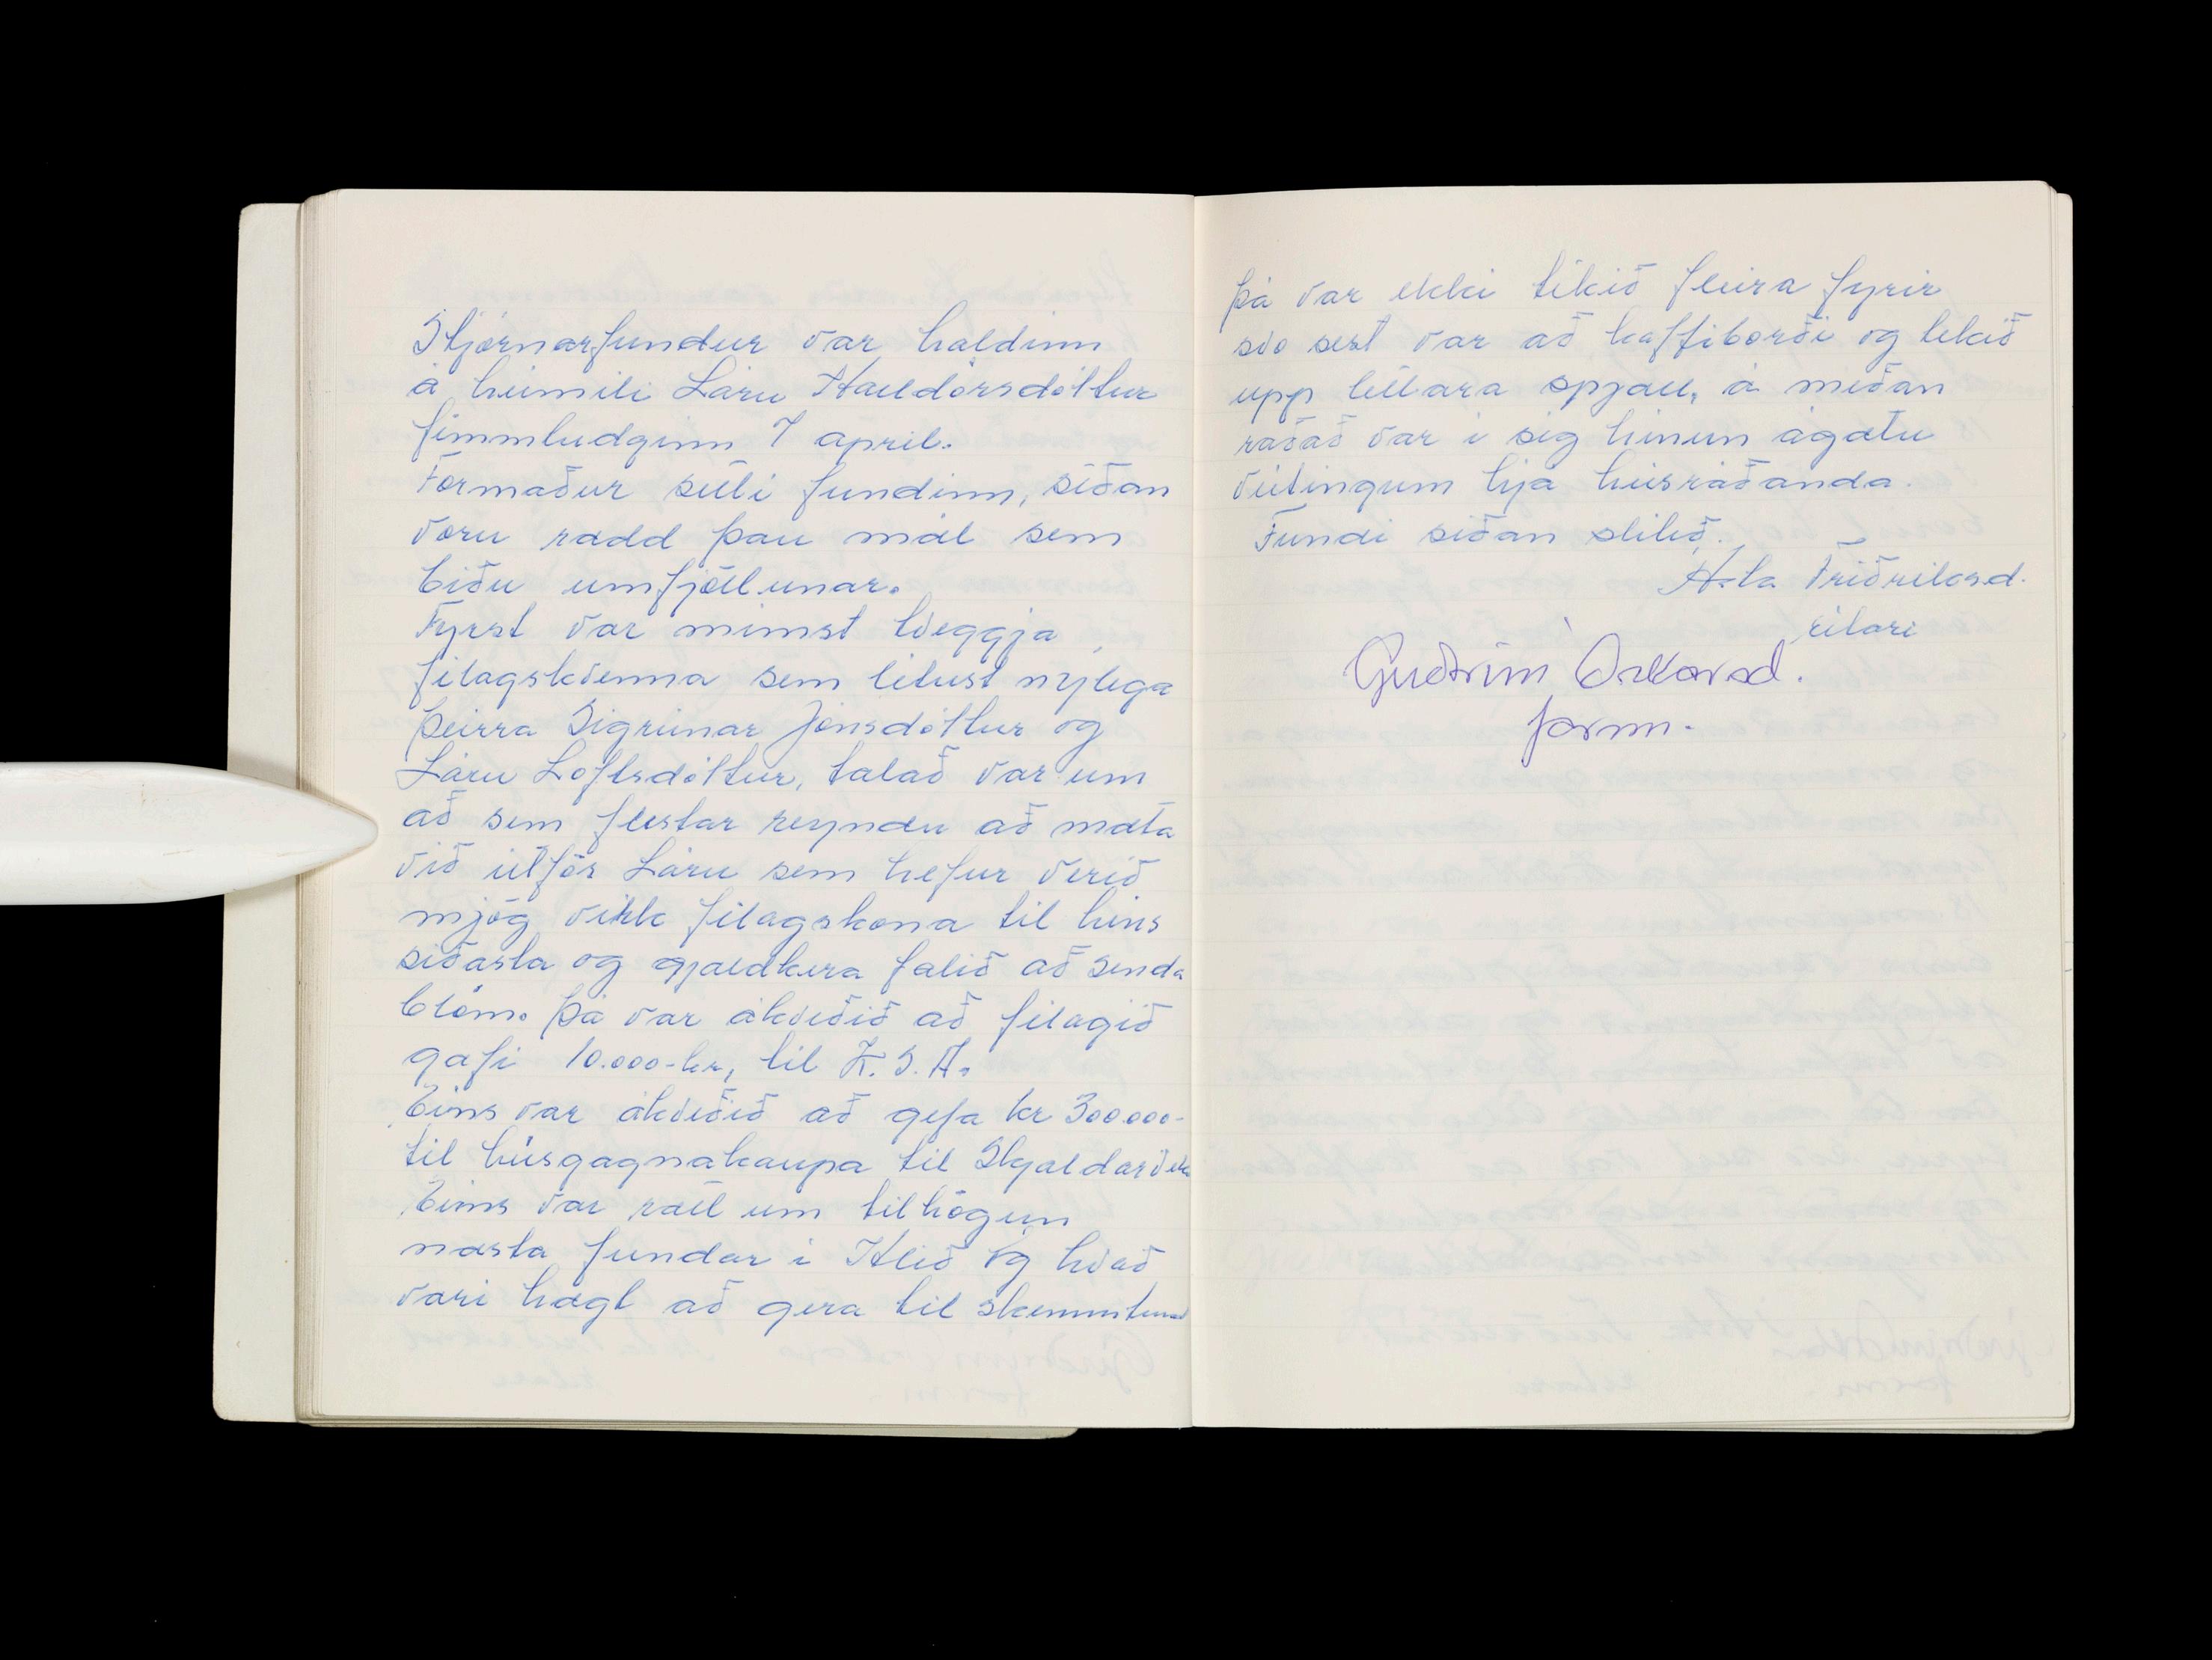 Stjórnarfundur var haldinn
á heimili Láru Halldórsdóttur
fimmtudaginn 7 apríl.
Formaður setti fundinn, síðan
voru rædd þau mál sem
biðu umfjöllunar.
Fyrst var minnst tveggja
félagskvenna sem létust nýlega
þeirra Sigrúnar Jónsdóttur og
Láru Loftsdóttur, talað var um
að sem flestar reyndu að mæta
við útför Láru sem hefur verið
mjög virk félagskona til hins
síðasta og gjaldkera falið að senda
blóm. Þá var ákveðið að félagið
gæfi 10.000-kr, til K.S.H.
Eins var ákveðið að gefa kr 300.000-
til húsgagnakaupa til Skjaldarvík
Eins var rætt um tilhögun
næsta fundar í Hlíð og hvað
væri hægt að gera til skemmtunar
þá var ekki tekið fleira fyrir
svo sest var að kaffiborði og tekið
upp léttara spjall, á meðan
raðað var í sig hinum ágætu
veitingum hjá húsráðanda.
Fundi síðan slitið.
Ásta Friðriksd.
ritari
Guðrún Óskarsd.
form.